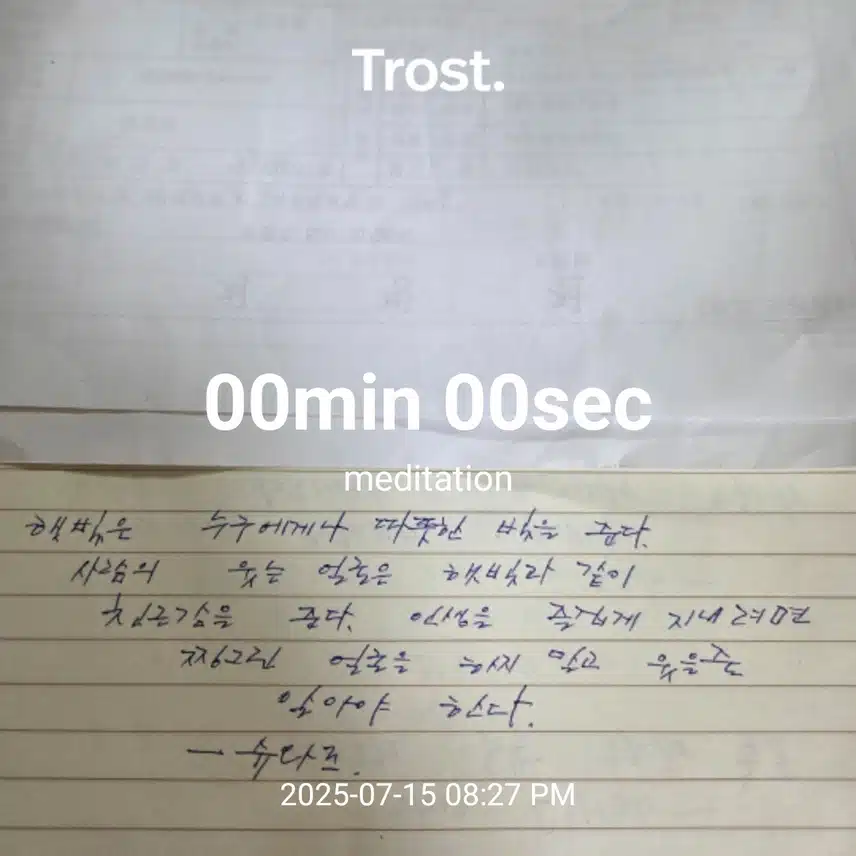 Trost.
00min 00sec
meditation
햇빛은 누구에게나 따뜻한 빛을 준다.
사람의 웃는 얼굴은 햇빛과 같이
친근감을 준다. 인생을 즐겁게 지내려면
찡그린 얼굴을 하지 말고 웃을줄
알아야 한다.
— 슈와프.
2025-07-15 08:27 PM